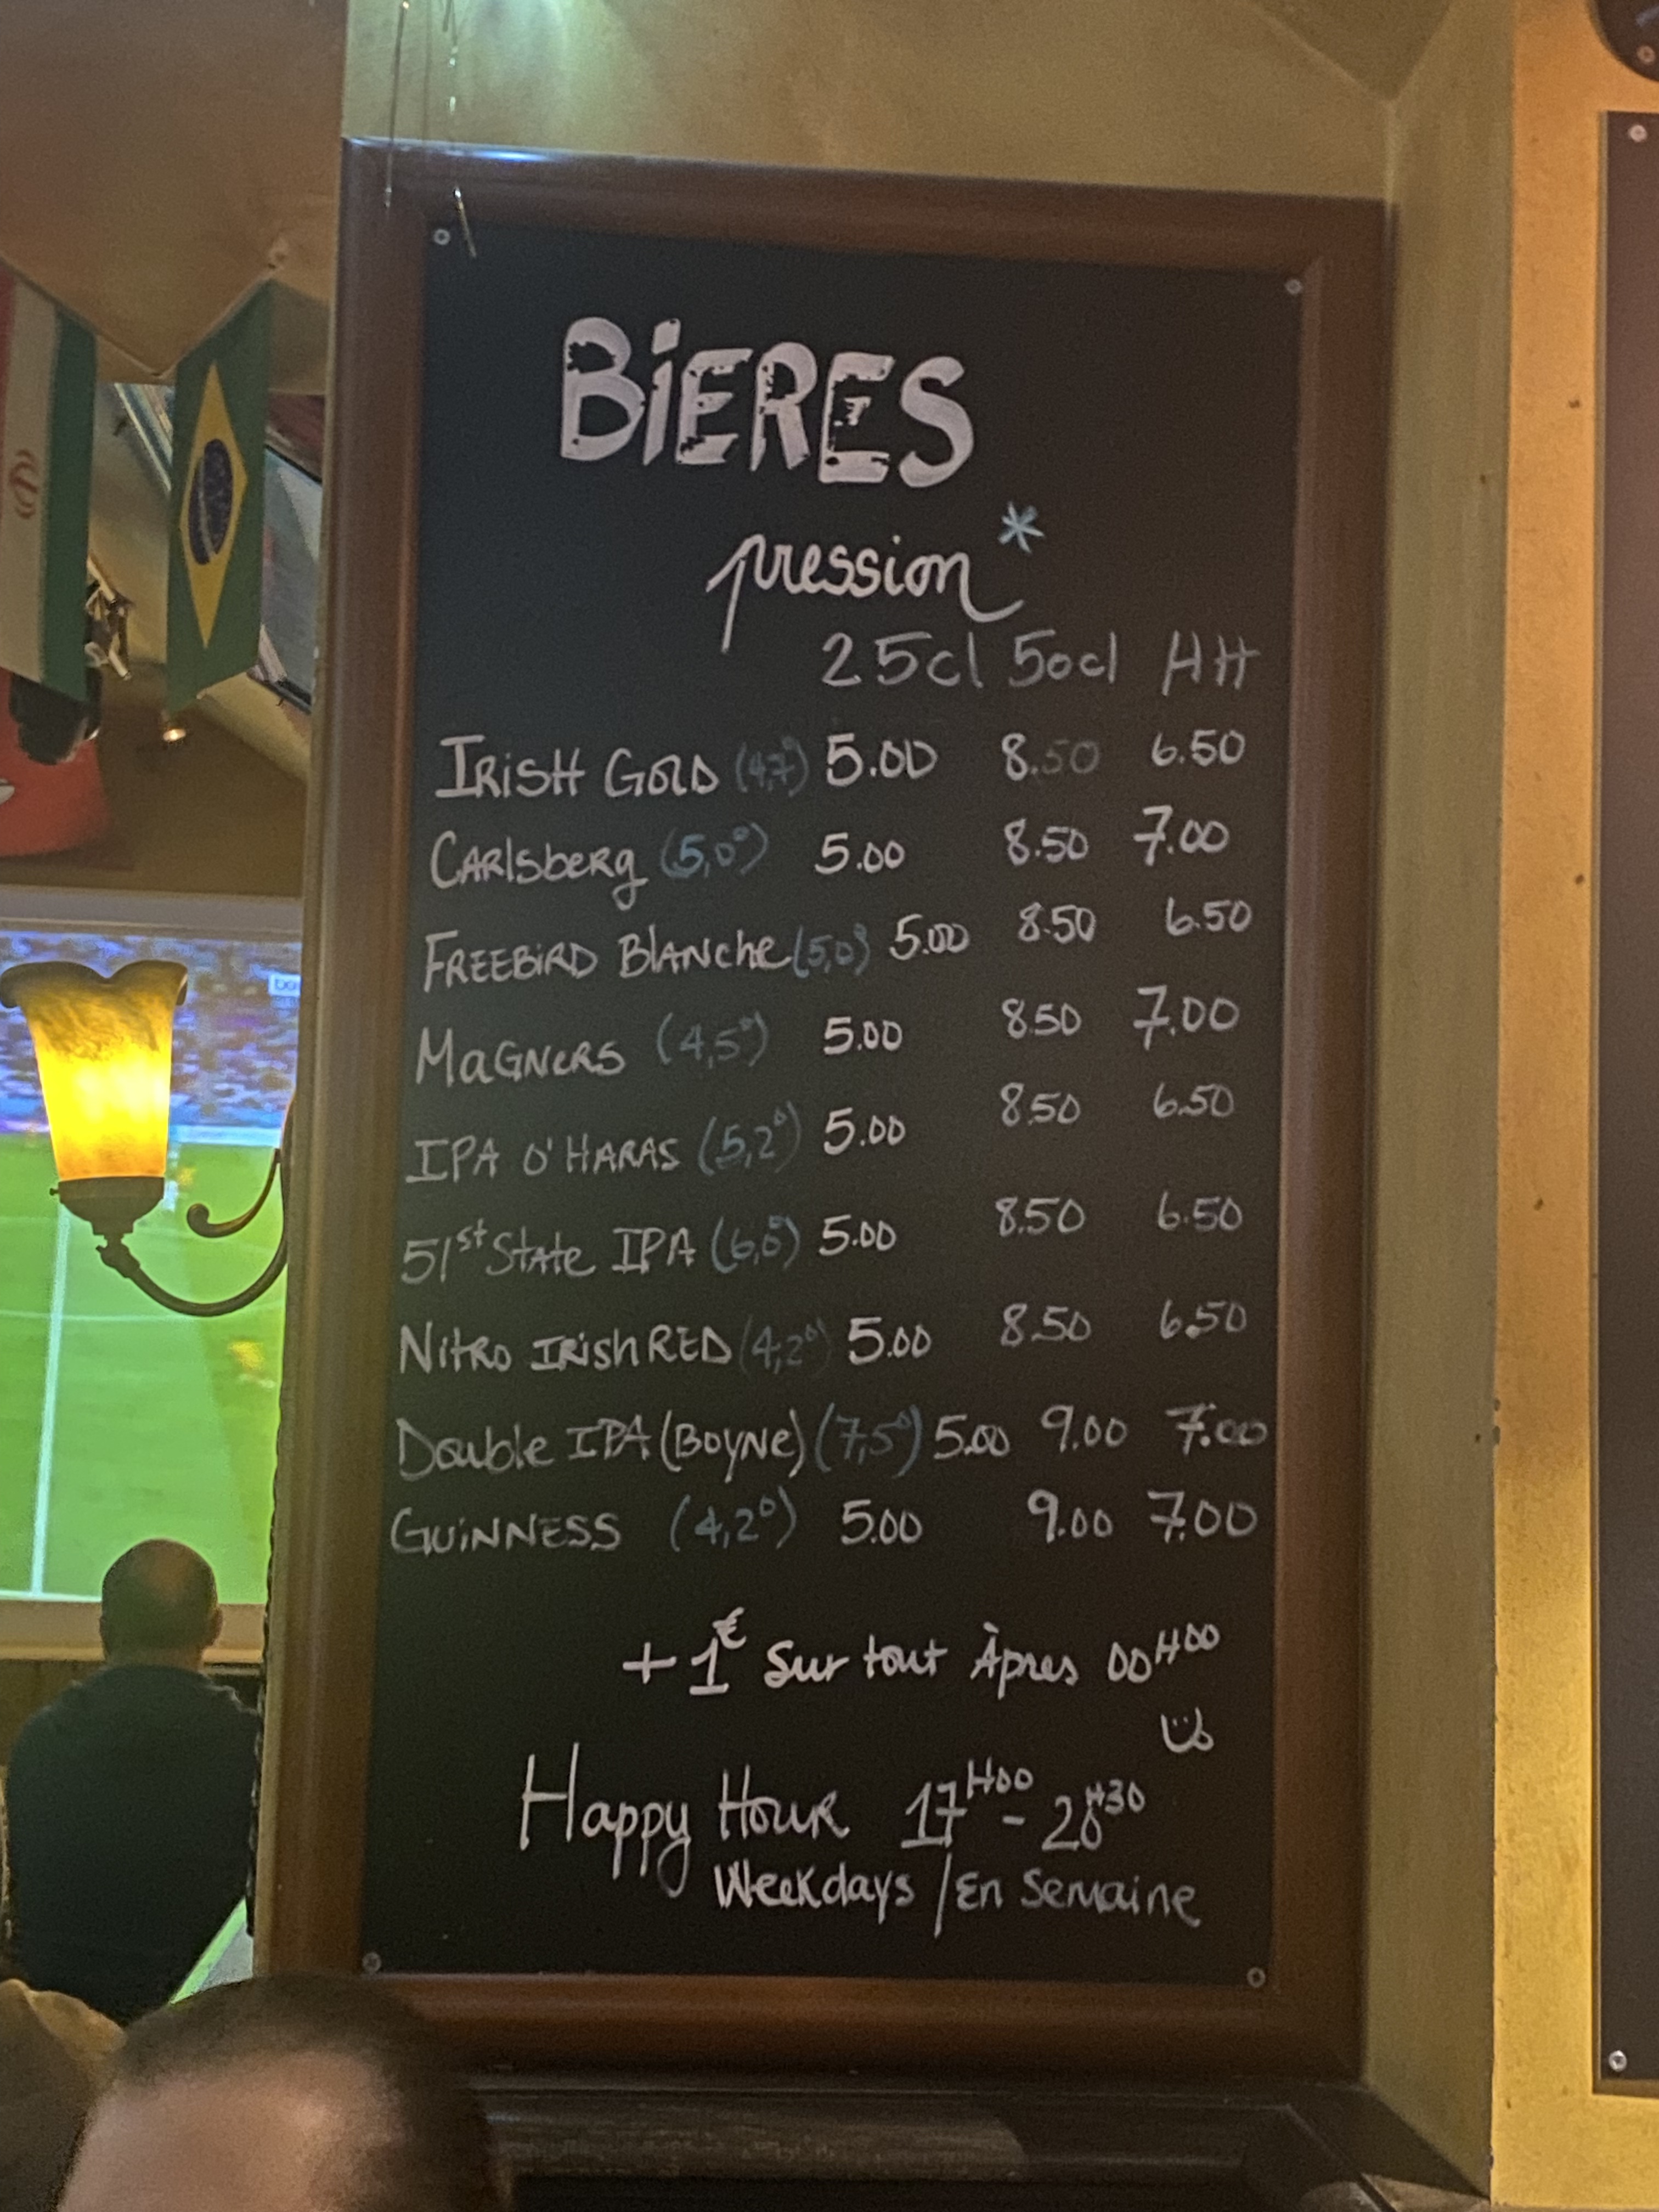 BiERES
pression*
25cl 50cl HH
IRISH GOLD (4,7°) 5.00 8.50 6.50
CARlsbeRg (5,0°) 5.00 8.50 7.00
FREEBiRD BlANche (5,0°) 5.00 8.50 6.50
MaGNeRS (4,5°) 5.00 8.50 7.00
IPA O'HARAS (5,2°) 5.00 8.50 6.50
51st State IPA (6,0°) 5.00 8.50 6.50
NitRO IRishRED (4,2°) 5.00 8.50 6.50
Double IPA (BOYNe) (7,5°) 5.00 9.00 7.00
GUiNNESS (4,2°) 5.00 9.00 7.00
+1€ Sur tout Àpres 00H00
Happy Hour 17H00 - 20H30
Weekdays / En Semaine